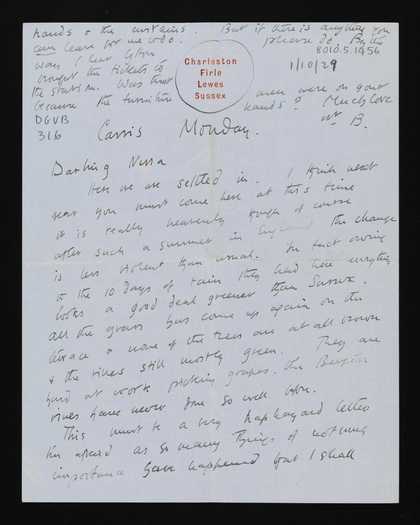 hands & the curtains. But if there is anything you
can leave for me to do. please do. By the
way I hear
brought the tickets to
the station. Was that
because the furniture
men were on your
hands? Much love
yr B.
8010.5.1956
1/10/29
Charleston
Firle
Lewes
Sussex
DGVB
316
Cassis Monday.
Darling Nessa
Here we are settled in. I think next
year you must come here at this time
it is really heavenly though of course
after such a summer in England the change
is less violent than usual. In fact owing
to the 10 days of rain they had here everything
looks a good deal greener than Sussex.
All the grass has come up again on the
terrace & none of the trees are at all brown
& the vines still mostly green. They are
hard at work picking grapes. The
vines have never done so well
This must be a very haphazard letter
I'm afraid as so many things of not much
importance have happened but I shall